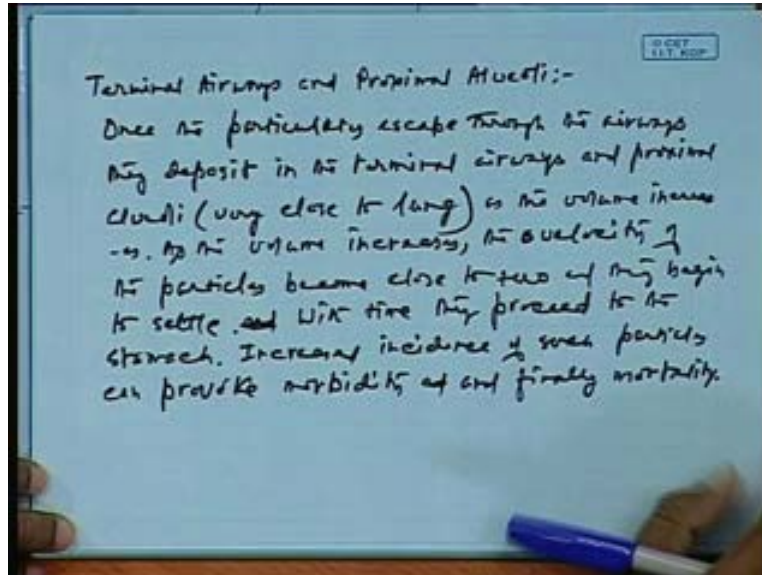 © CET
I.I.T. KGP
Terminal Airways and Proximal Alveoli:-
Once the particulates escape through the airways
they deposit in the terminal airways and proximal
alveoli (very close to lung) as the volume increas
-es. As the volume increases, the velocity of
the particles become close to zero and they begin
to settle. With time they proceed to the
stomach. Increased incidence of such particles
can provoke morbidity and finally mortality.